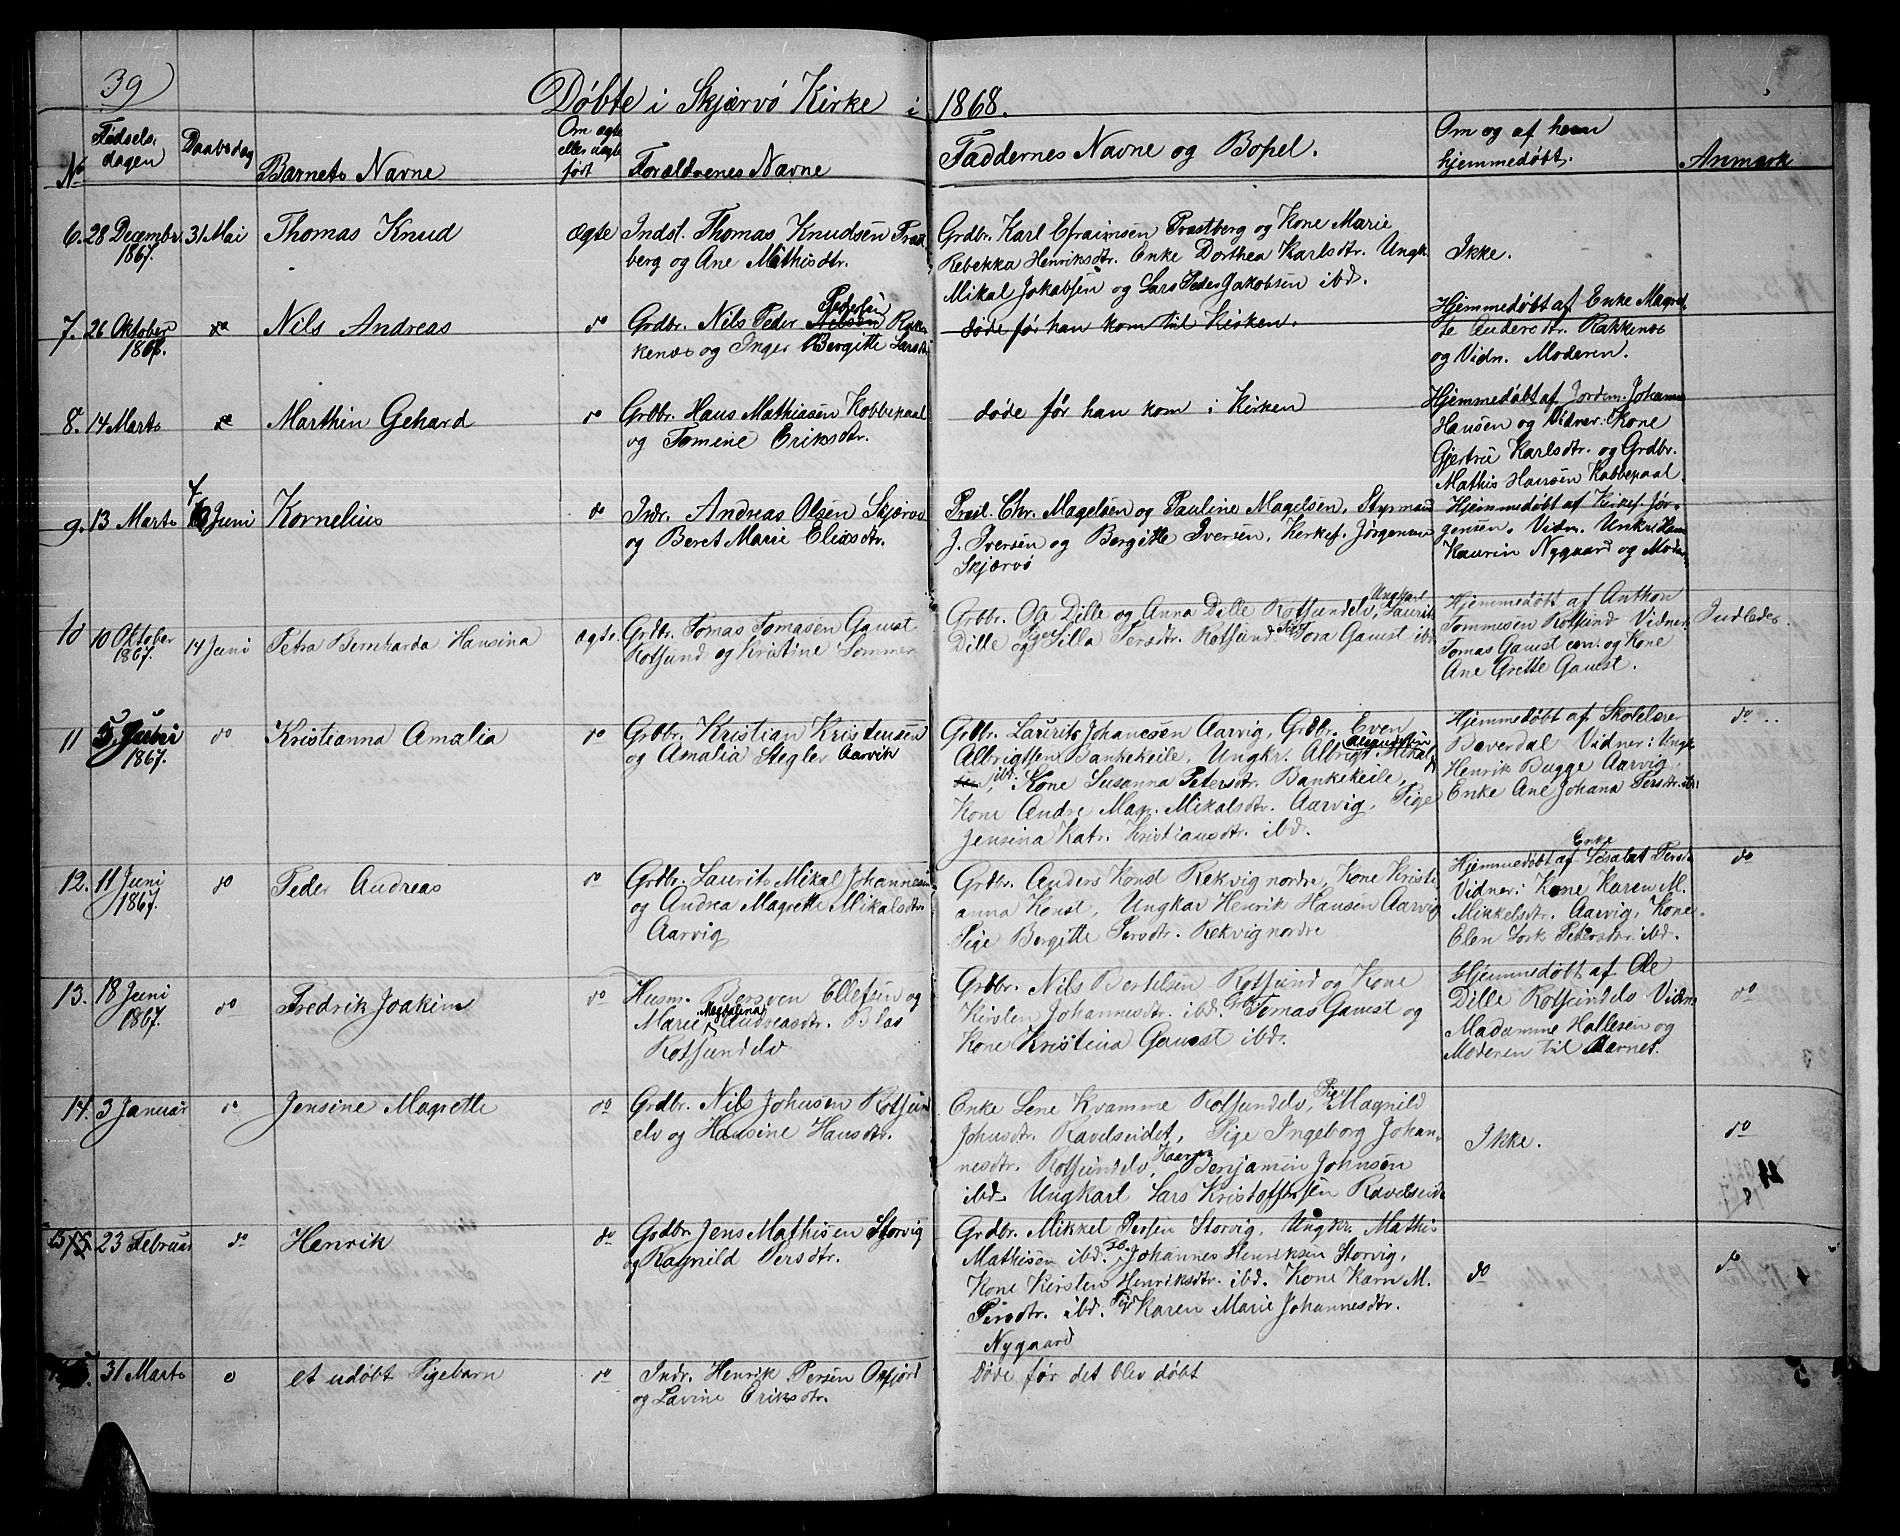 39
Døbte i Skjærvø Kirke i 1868.
No Fødselsdagen Daabsdag Barnets Navne Om ægte eller uægte født Forældrenes Navne Faddernes Navne og Bopel. Om og af hvem hjemmedøbt. Anmærk
6. 28 Decembr. 1867. 31 Mai Thomas Knud Ægte
Indst. Thomas Knudsen Træt
berg og Ane Mathisdtr.
Grdbr. Karl Efraimsen Trætberg og Kone Marie
Rebekka Henriksdtr. Enke Dorthea Karlsdtr. Ungk.
Mikal Jokabsen og Lars Peder Jakobsen ibd.
Ikke.
7. 26 Oktober 1867. do Nils Andreas do
Grdbr. Nils Peder Nilsen Pedersen Rak
kenæs og Inger Bergitte Larsdtr
døde før han kom til Kirken.
Hjemmedøbt af Enke Magret
te Andersdtr. Rakkenæs
og Vidn. Moderen.
8. 14 Marts do Marthin Gehard do
Grdbr. Hans Mathiasen Kobbepaal
og Tomine Eriksdtr.
døde før han kom i Kirken
Hjemmedøbt af Jordm. Johanna
Hansen og Vidner: Kone
Gjertru Karlsdtr. og Grdbr.
Mathis Hansen Kobbepaal.
9. 13 Marts 7 Juni Kornelius do
Indr. Andreas Olsen Skjærvø
og Beret Marie Eliasdtr.
Præst. Chr. Magelsen og Pauline Magelsen, Styrmand
J. Iversen og Bergitte Iversen, Kirkes. Jørgensen
Skjærvø
Hjemmedøbt af Kirkes. Jør-
gensen, Vidn. Unkr. Hans
Kaurin Nygaard og Moder
10 10 Oktober 1867. 14 Juni Petra Bernharda Hansina ægte.
Grdbr. Tomas Tomasen Gaust
Rotsund og Kristine Sommer
Grbr. Ole Dille og Anna Dille Rotsundelv, Ungkarl Laurits
Dille og Pige Silla Persdtr. Rotsund Kone Tora Gaust ibd
Hjemmedøbt af Anthon
Tommesen Rotsund Vidner:
Tomas Gaust sen. og Kone
Ane Grette Gaust.
Indledes.
11 5 Juni 1867. do Kristianna Amalia do
Grbr. Kristian Kristensen
og Amalia Stegler Aarvik
Grdbr. Laurits Johanesen Aarvig, Grdbr. Even
Albrigtsen Bankekeile, Ungkr. Albrigt Mikal
sen, ibd. Kone Susanna Petersdtr. Bankekeile,
Kone Andre Mag. Mikalsdtr. Aarvig, Pige
Jensina Katr. Kristiansdtr. ibd.
Hjemmedøbt af Skolelærer
Bæverdal Vidner: Ungk
Henrik Bugge Aarvig,
Enke Ane Johana Persdtr. ibd
do
12. 11 Juni 1867. do Peder Andreas do
Grdbr. Laurits Mikal Johannesen
og Andrea Magrette Mikalsdtr.
Aarvig
Grdbr. Anders Konst Rekvig nordre, Kone Kristi
anna Konst, Ungkar Henrik Hansen Aarvig
Pige Bergitte Persdtr. Rekvig nordre
Hjemmedøbt af Enke Lisabet Persd
Vidner: Kone Karen M.
Mikkelsdtr. Aarvig, Kone
Elen Sork Petersdtr. ibd.
do
13. 18 Juni 1867. do Fredrik Joakim do
Husm. Bersven Ellefsen og
Marie Magdalena Andreasdtr. Blas
Rotsundelv
Grdbr. Nils Bertelsen Rotsund og Kone
Kirsten Johannesdtr. ibd. Grdb. Tomas Gaust og
Kone Kristina Gaust ibd.
Hjemmedøbt af Ole
Dille Rotsundelv Vidn
Madamme Hallesen og
Moderen til Barnet.
do
14. 3 Januar do Jensine Magrette do
Grdbr. Nils Johnsen Rotsund
elv og Hansine Hansdtr.
Enke Lene Kvamme Rotsundelv, Pige Magnild
Johnsdtr. Ravelseidet, Pige Ingeborg Johan-
nesdtr. Rotsundelv, Benjamin Johnsen
ibd. Ungkarl Lars Kristoffersen Ravelseide
Ikke.
do
15. 23 Februar do Henrik do
Grdbr. Jens Mathisen Storvig
og Ragnild Persdtr.
Grdbr. Mikkel Persen Storvig, Ungkr. Mathis
Mathisen ibd. Johannes Henriksen Storvig,
Kone Kirsten Henriksdtr. ibd. Kone Karn M.
Persdtr. ibd. Pige Karen Marie Johannesdtr.
Nygaard
do
do
31 Marts et udøbt Pigebarn do
Indr. Henrik Persen Oxfjord
og Lavine Eriksdtr.
Døde før det blev døbt